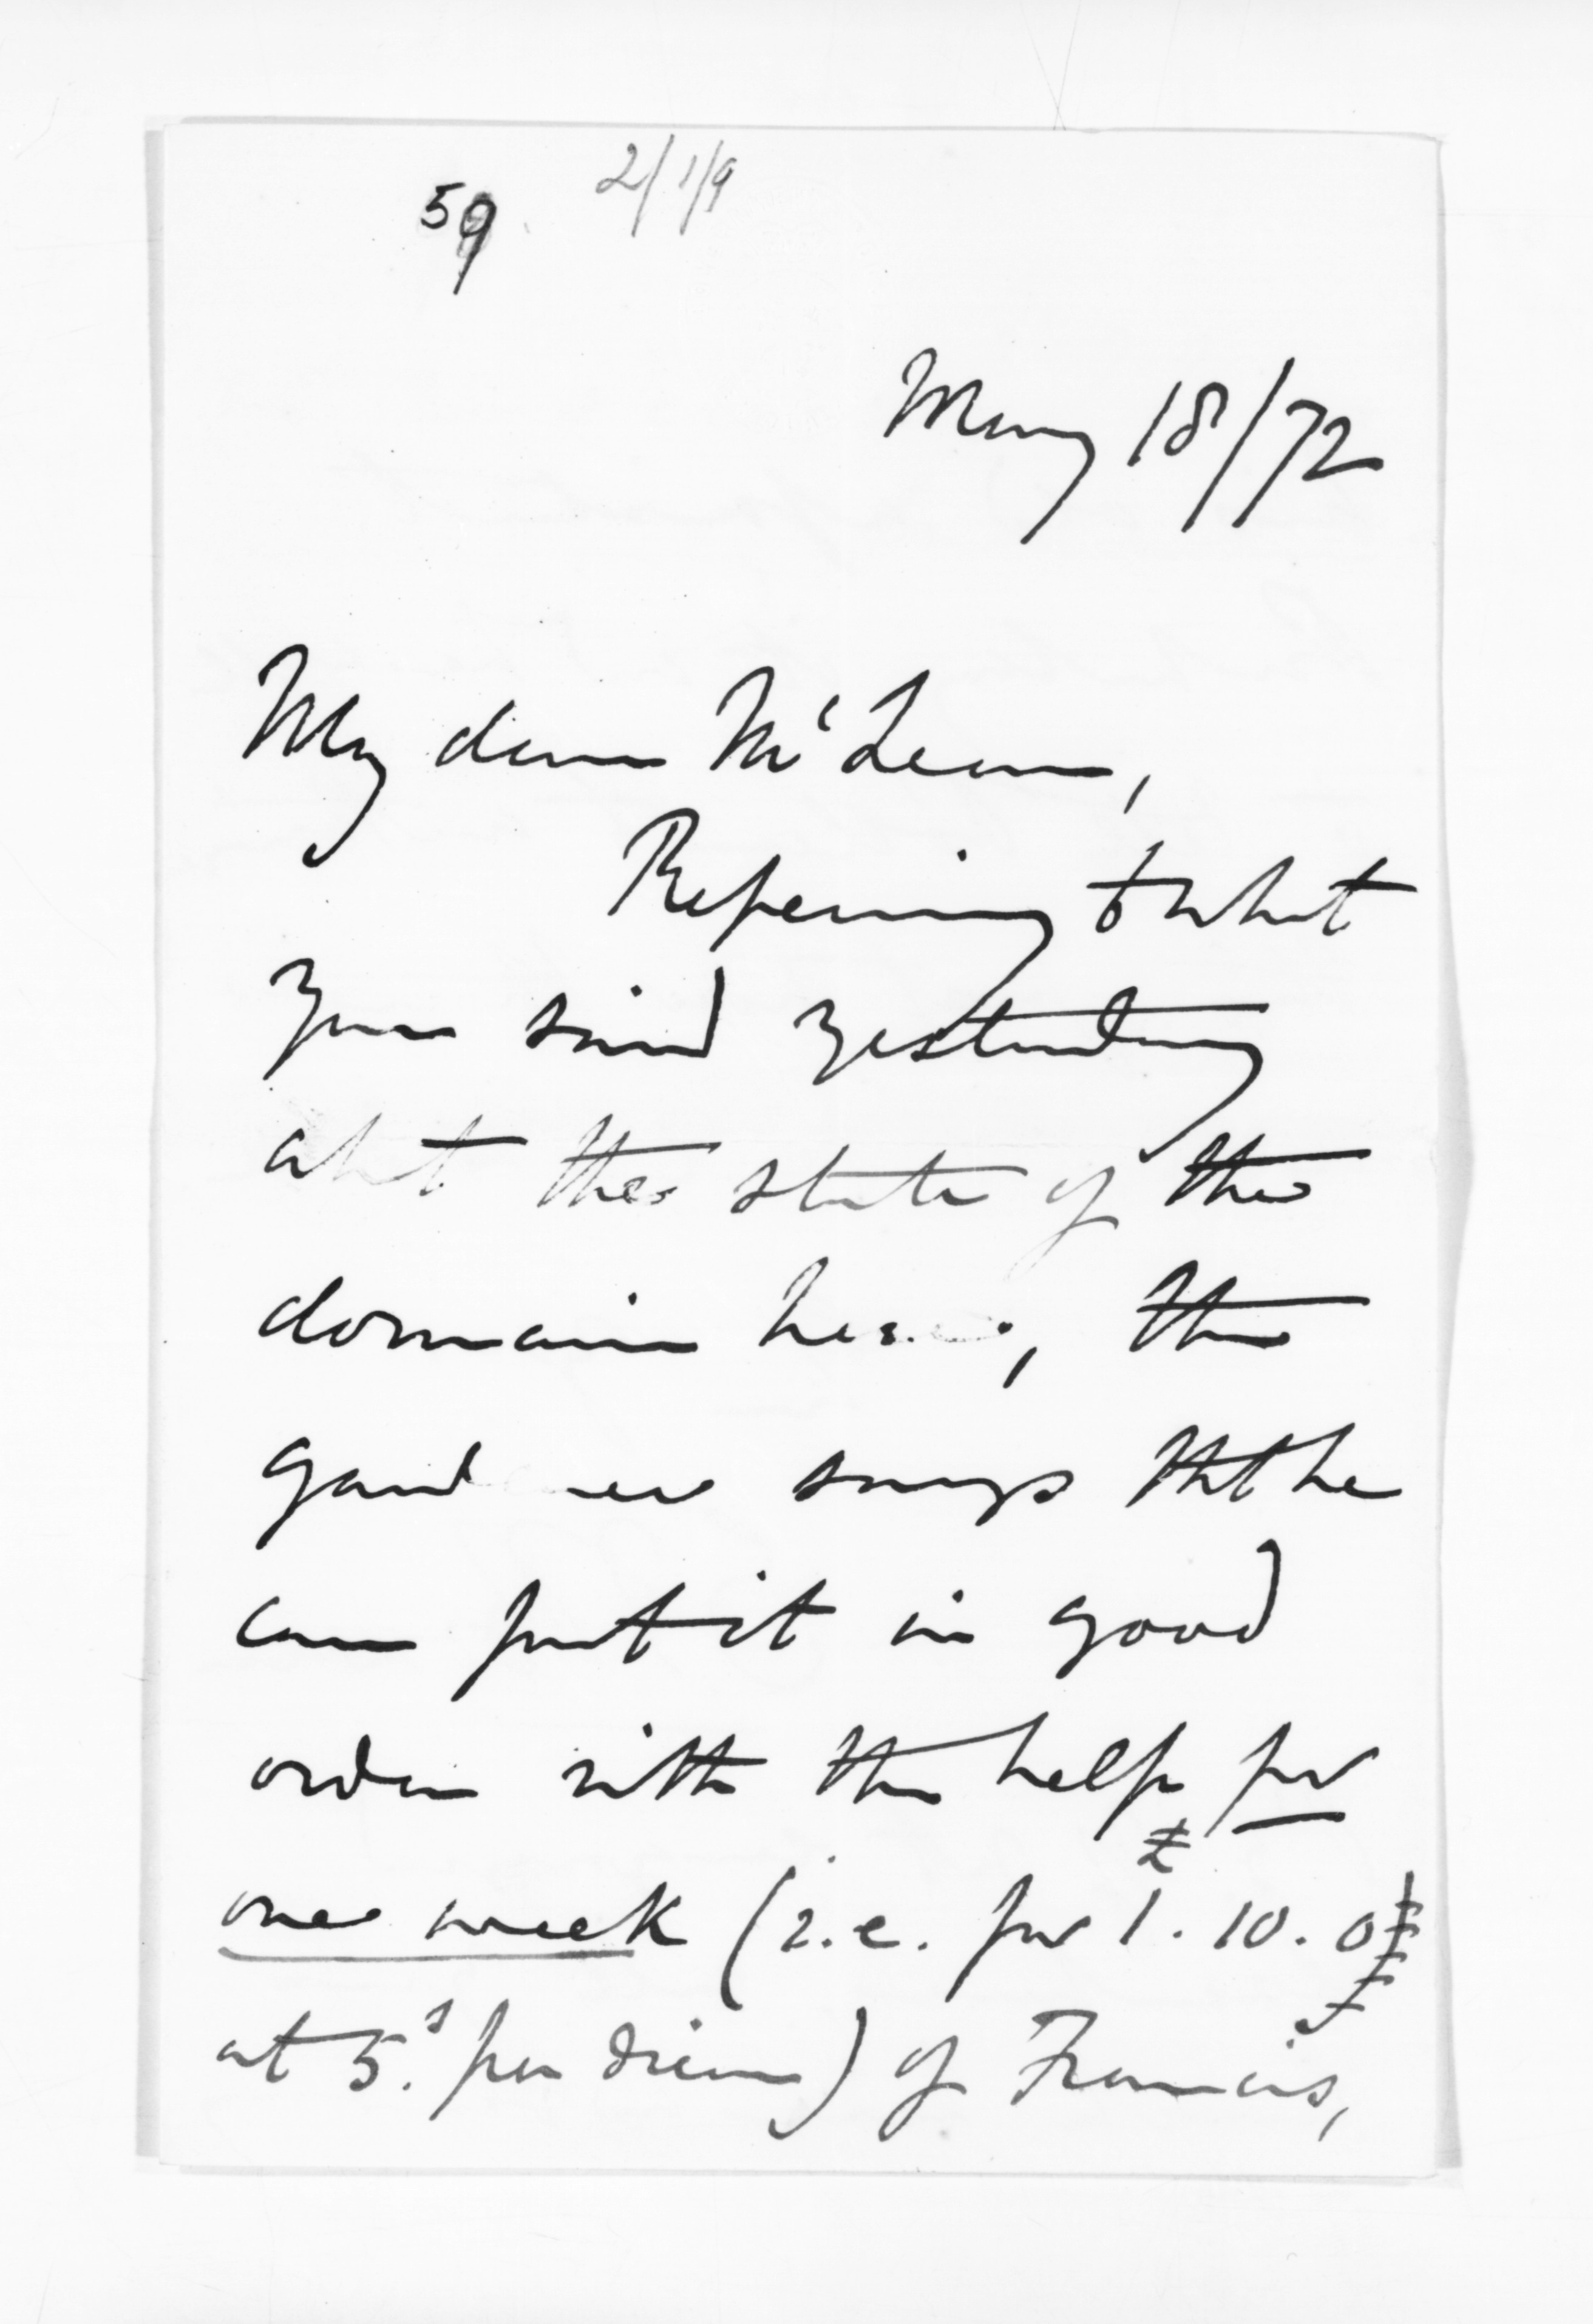 59 2/1/9
May 18/72
My dear McLean,
Referring to what
you said yesterday
abt the state of the
domain here, the
gardener says tht he
can put it in good
order with the help for
one week (i.e. for £1.10.0
at 5.s per diem) of Francis,